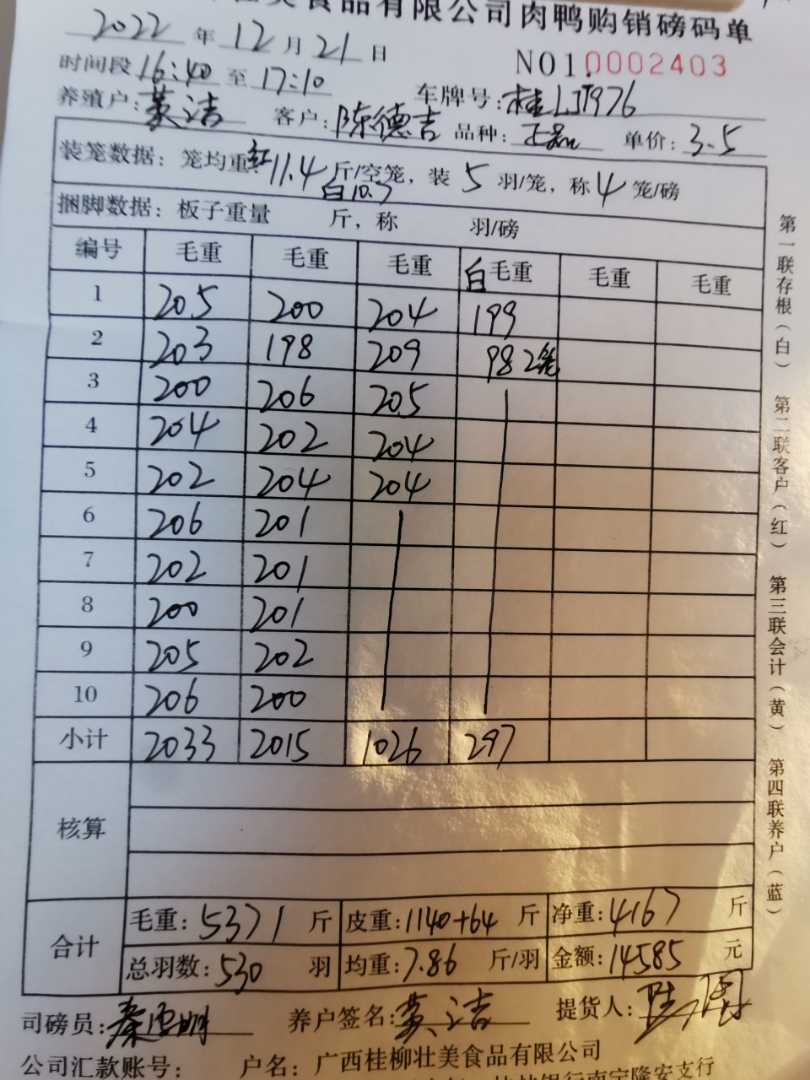 壮美食品有限公司肉鸭购销磅码单
2022年12月21日 NO10002403
时间段16:40至17:10
养殖户:黄洁 客户:陈德吉 车牌号:桂LJ1976 品种:正品 单价:3.5
装笼数据:笼均重红11.4斤/空笼,装5羽/笼,称4笼/磅
白10.7
捆脚数据:板子重量 斤,称 羽/磅
编号 毛重 毛重 毛重 白毛重 毛重 毛重
1 205 200 204 199
2 203 198 209 98 2笼
3 200 206 205
4 204 202 204
5 202 204 204
6 206 201
7 202 201
8 200 201
9 205 202
10 206 200
小计 2033 2015 1026 297
核算
合计 毛重:5371斤 皮重:1140+64斤 净重:4167斤
总羽数:530羽 均重:7.86斤/羽 金额:14585元
司磅员: 养户签名:黄洁 提货人:
公司汇款账号: 户名:广西桂柳壮美食品有限公司
银行南宁隆安支行
第一联存根(白) 第二联客户(红) 第三联会计(黄) 第四联养户(蓝)